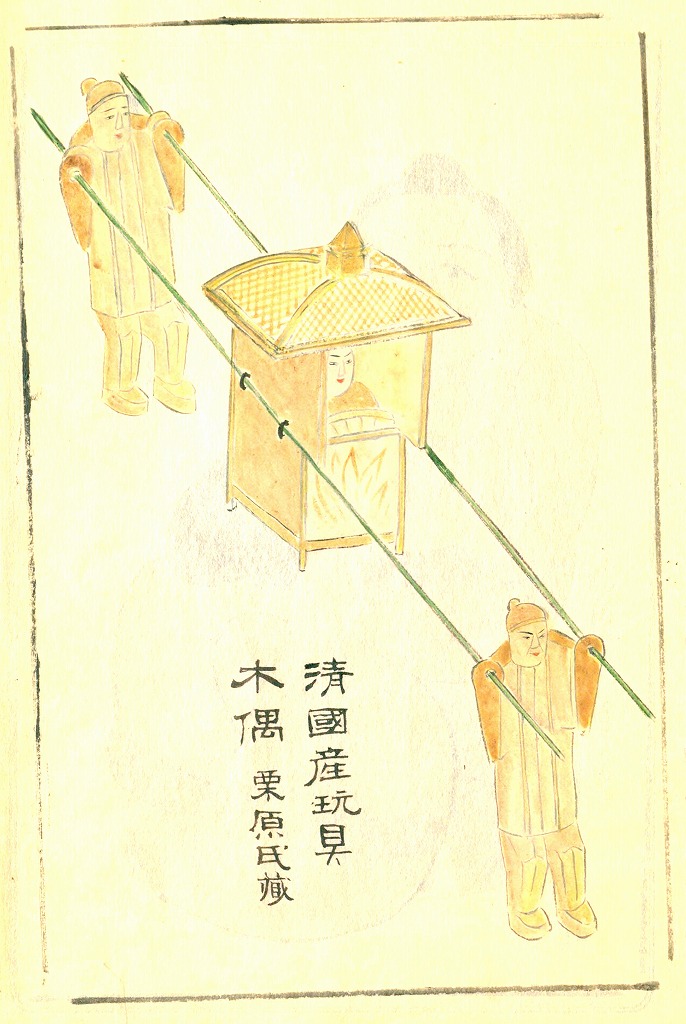 清國産玩具
木偶 栗原氏藏